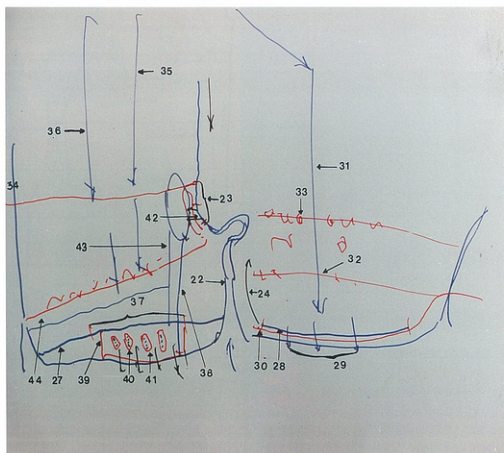 35
36
31
34
23
33
42
43
32
22
24
37
44
27
39
40
41
38
30
28
29